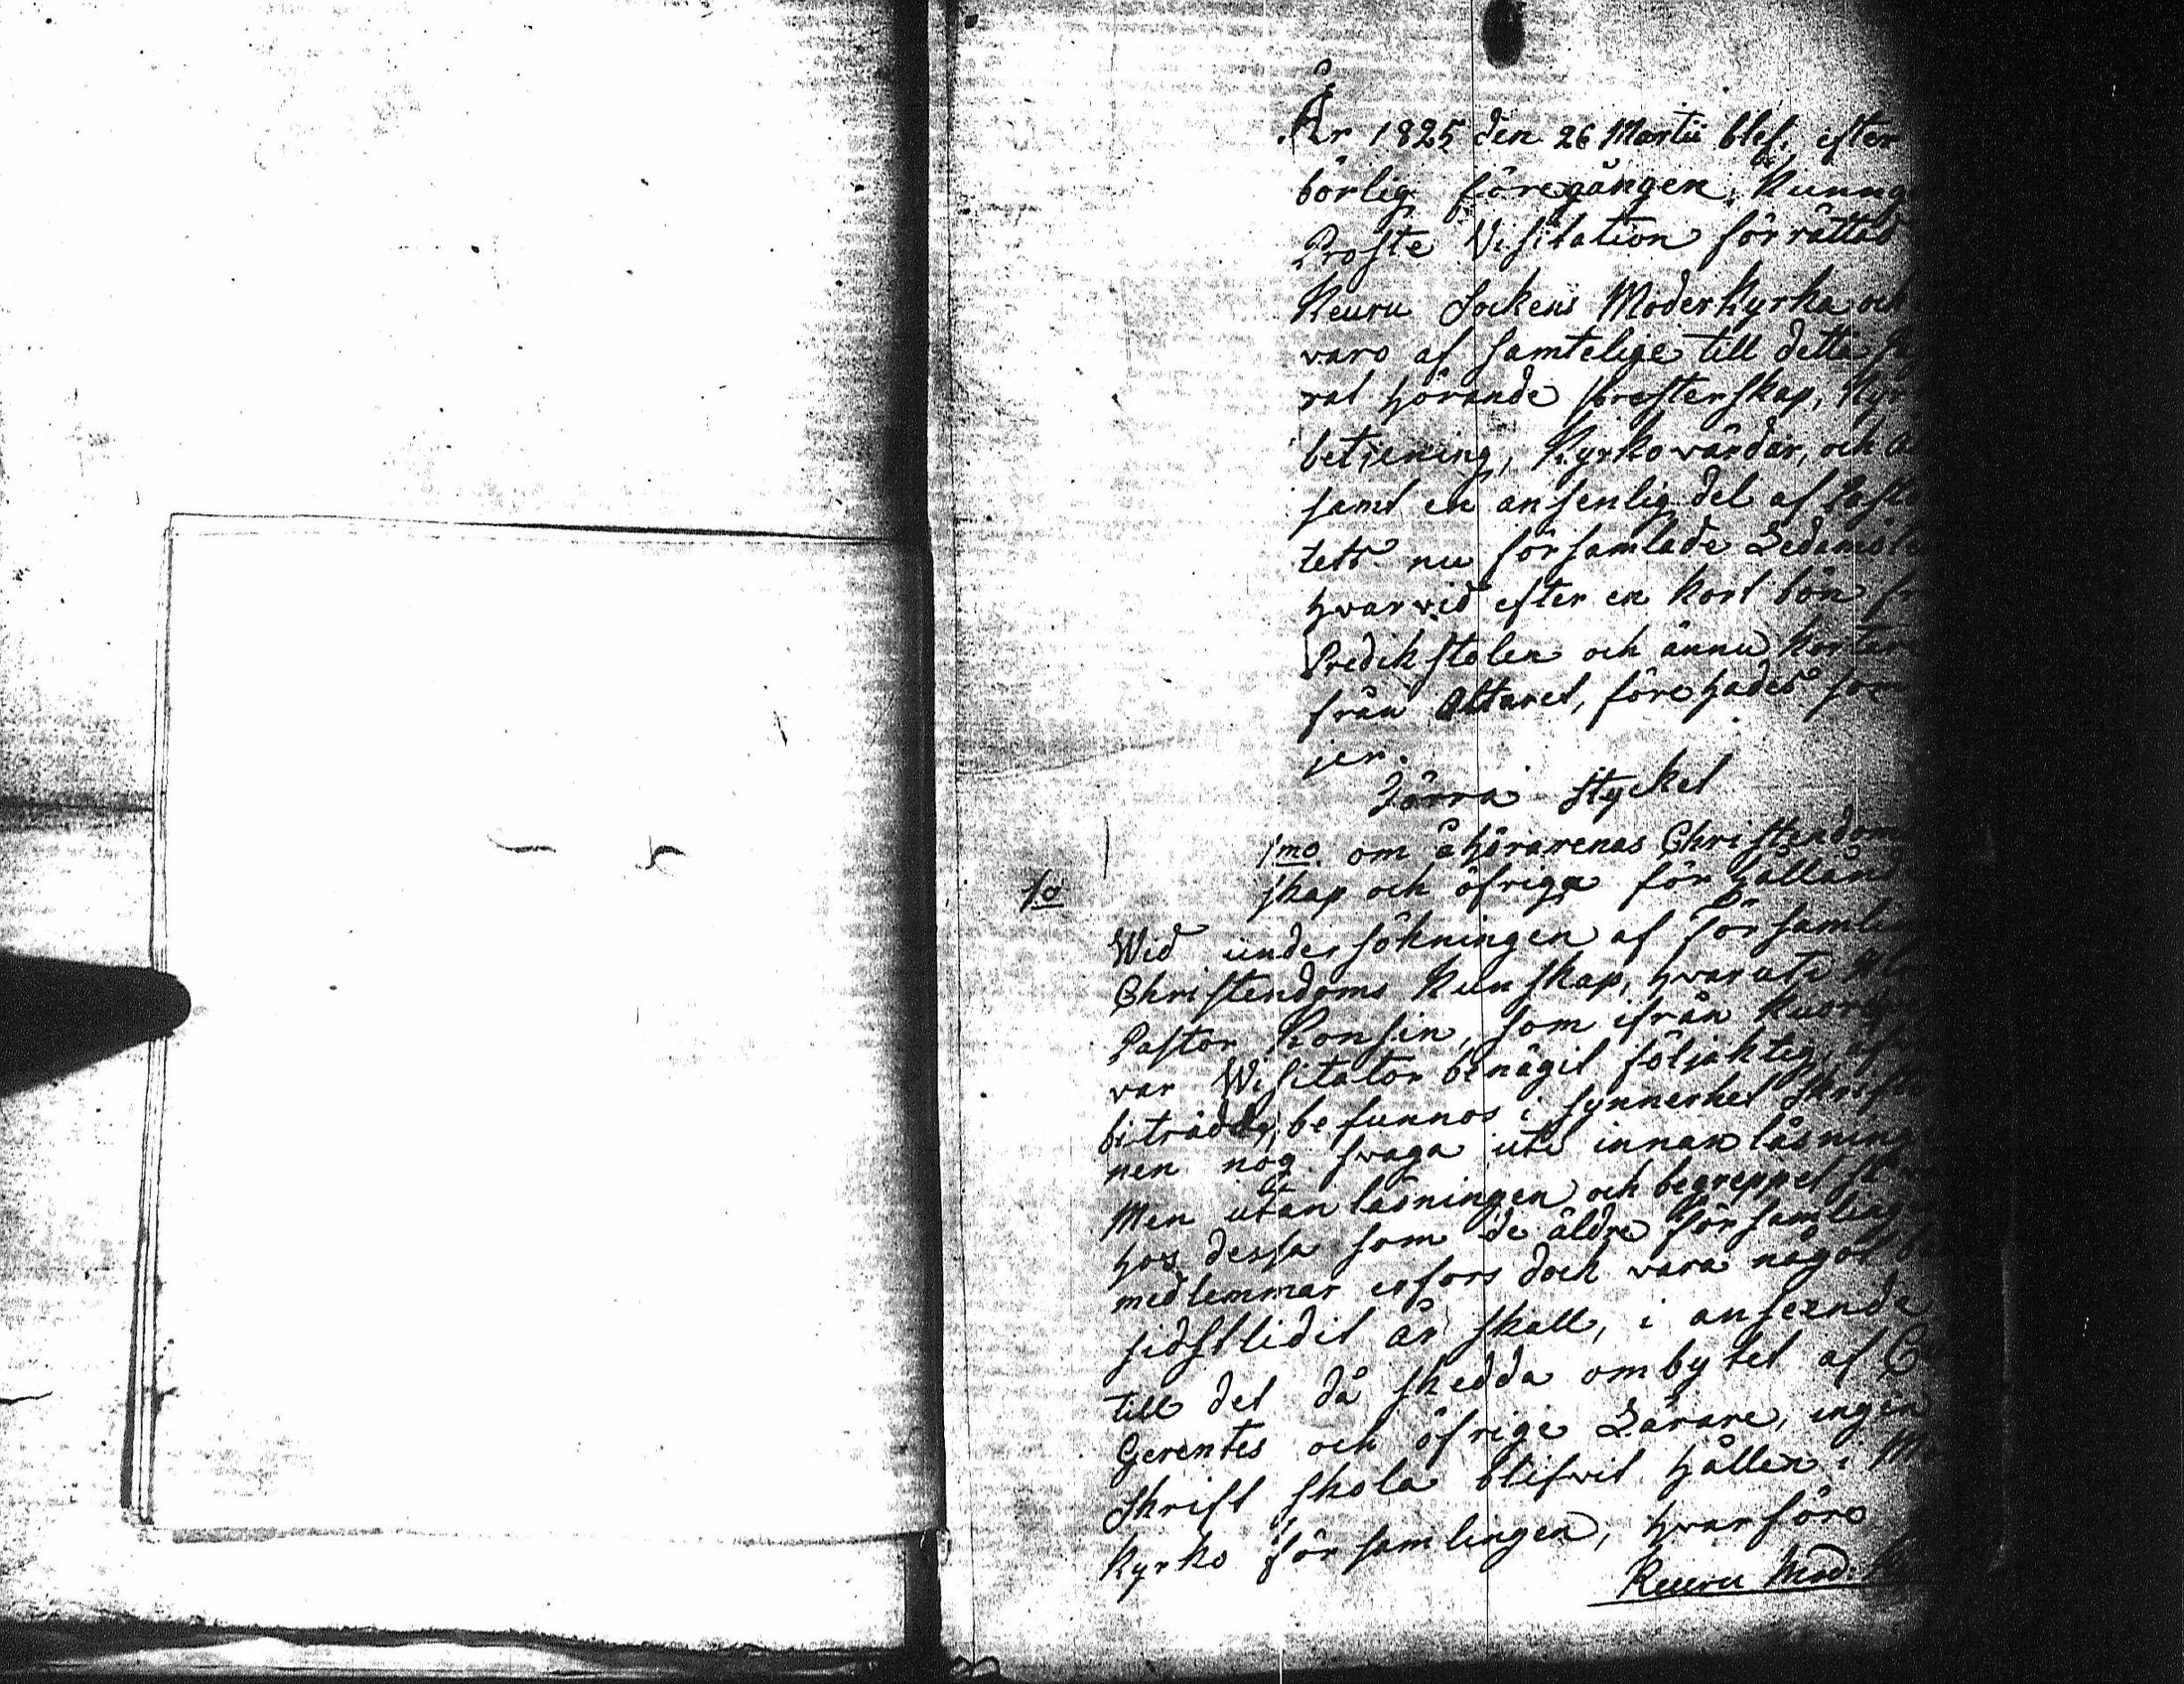 År 1825 den 26 Martii blef, efter
börlig föregången Kunng
Proste Visitation förrättad
Keuru Sockens Moderkyrka och
varo af samtelige till detta
rat hörande Presterskap, Kyr
betjening, Kyrkovärdar, och
samt en ansenlig del af Paste
tets nu församlade Ledamöte
hvarvid efter en kort bön fr
Predikstolen och ännu kortare
från Altaret,förehades som
jer.
Förra Stycket
1mo om åhörarenas Christendoms
skap och öfriga förhålland
1o
Wid undersökningen af församlin
Christendoms Kunskap, hvaruti
Pastor Konsin, som ifrån Kuor
var Visitator benägit följaktig,
biträdde, befunnos i synnerhet Skrift
nen nog svaga uti innanläsning
Men utanläsningen och begreppet
hos dessa som de äldre församling
medlemmar erfors dock vara något
sidstlidit år skall, i anseende
till det då skedda ombytet af
Gerentes och öfrige Lärare, ingen
Skrift skola blifvit hållen i
Kyrko församlingen, hvarföre
Keuru Mod: